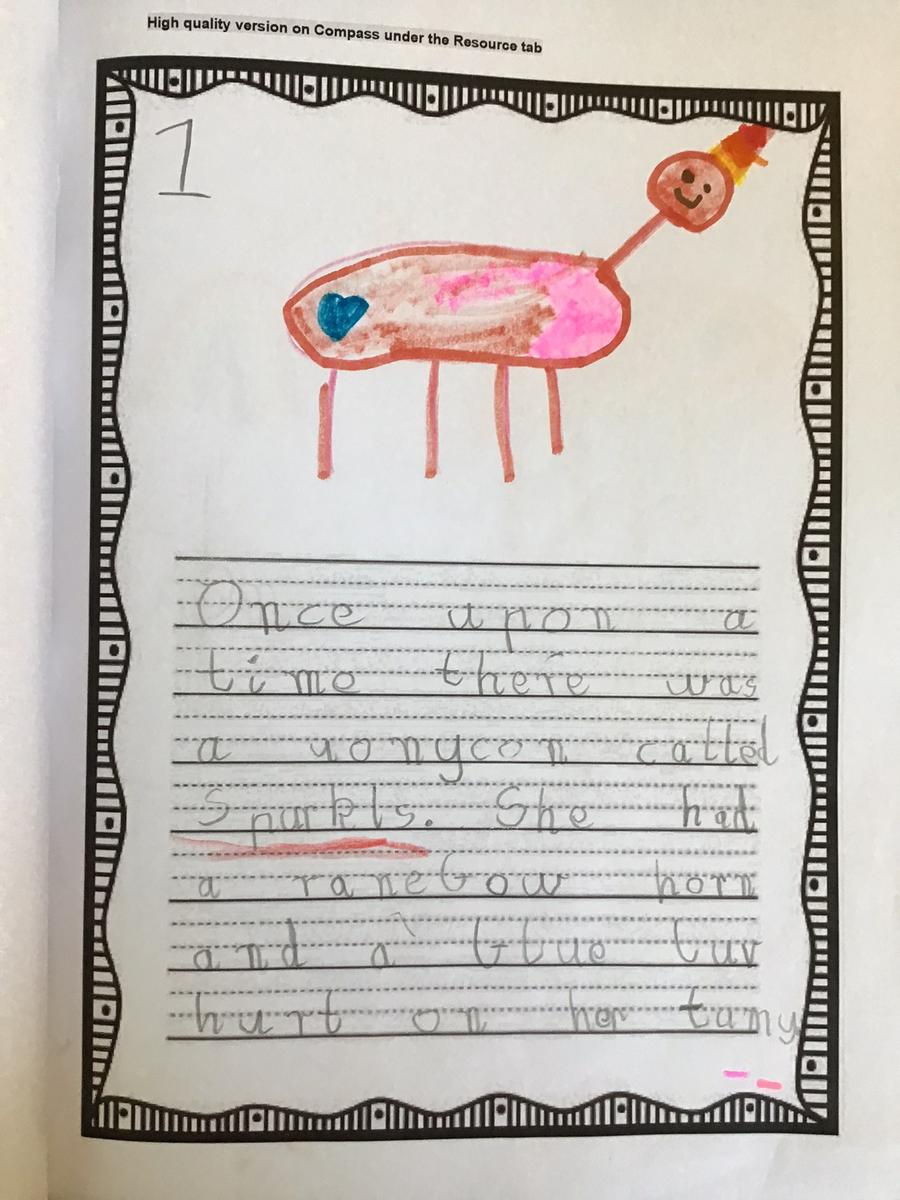 High quality version on Compass under the Resource tab
1
Once upon a
time there was
a uonycon called
Sparkls. She had
a ranebow horn
and a blue luv
hurt on her tamy